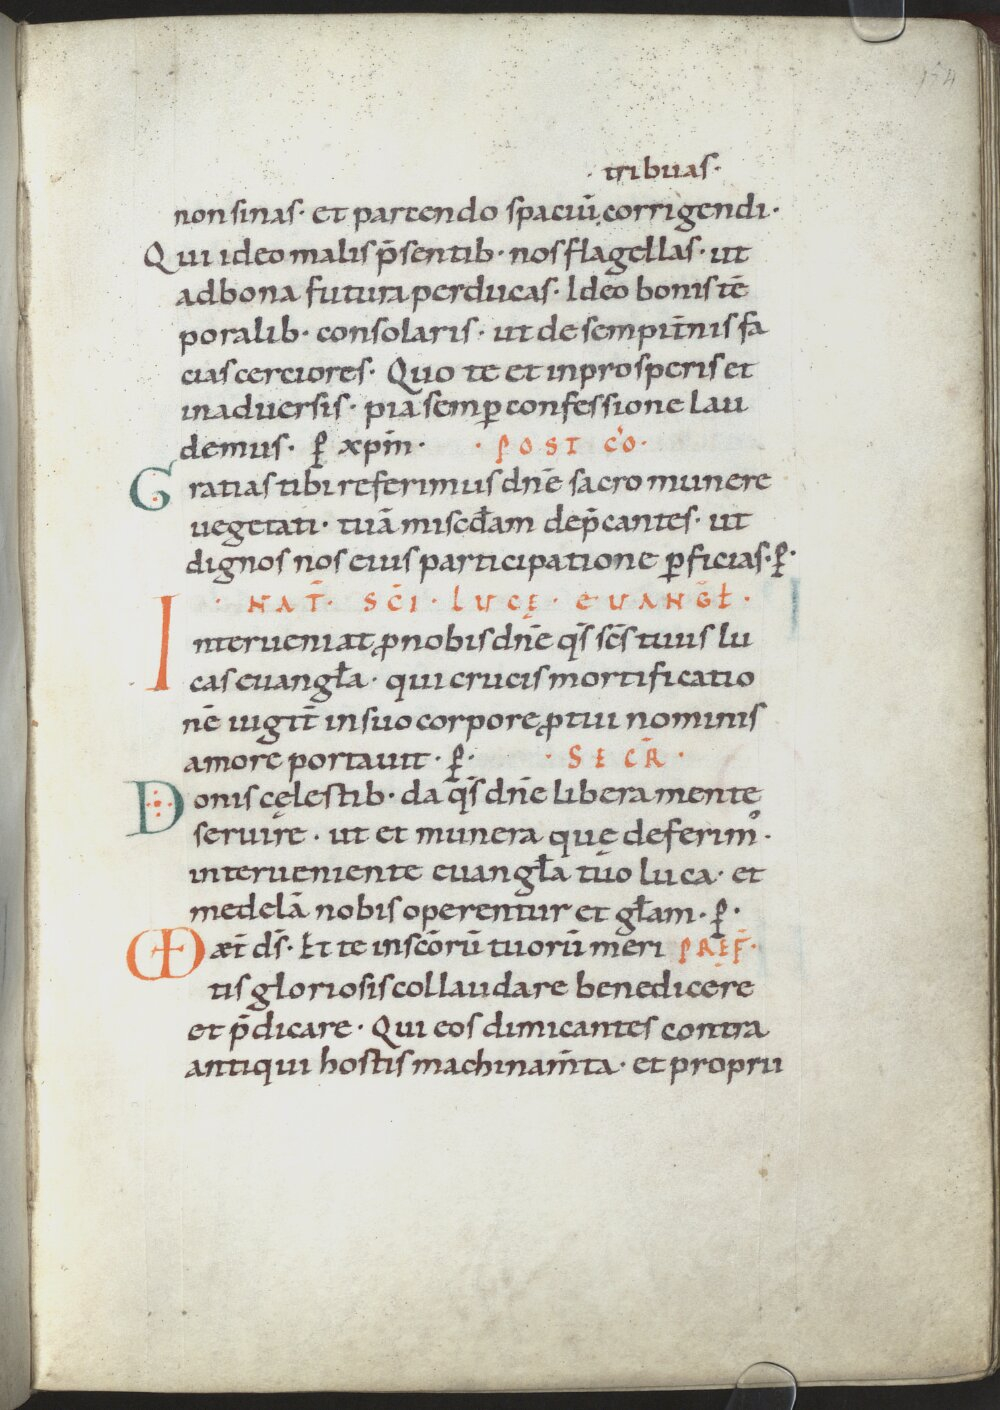 154
· tribuas·
non sinas· et parcendo spaciū corrigendi·
Qui ideo malis p̄sentib· nos flagellas· ut
ad bona futura perducas· Ideo bonis tē
poralib· consolaris· ut de sempit̄nis fa
cias cerciores· Quo te et in prosperis et
in aduersis· pia semꝑ confessione lau
demus· ꝑ xp̄m· · POST CO·
Gratias tibi referimus dn̄e sacro munere
uegetati· tuā misc̄dam dep̄cantes· ut
dignos nos eius participatione ꝑficias· ꝑ·
· NAT̄· SC̄I· LUCĘ· EUANGŁ·
Interueniat ꝓ nobis dn̄e q̄s sc̄s tuus lu
cas euangła· qui crucis mortificatio
nē iugit̄ in suo corpore ꝓ tui nominis
amore portauit· ꝑ· · SECR̄·
Donis cęlestib· da q̄s dn̄e libera mente
seruire· ut et munera quę deferim᷒·
interueniente euangła tuo luca· et
medelā nobis operentur et gła̅m· ꝑ·
UD æt̄ ds̄· Et te in sc̄orū tuorū meri PREF̄·
tis gloriosis collaudare benedicere
et p̄dicare· Qui eos dimicantes contra
antiqui hostis machinam̄ta· et proprii